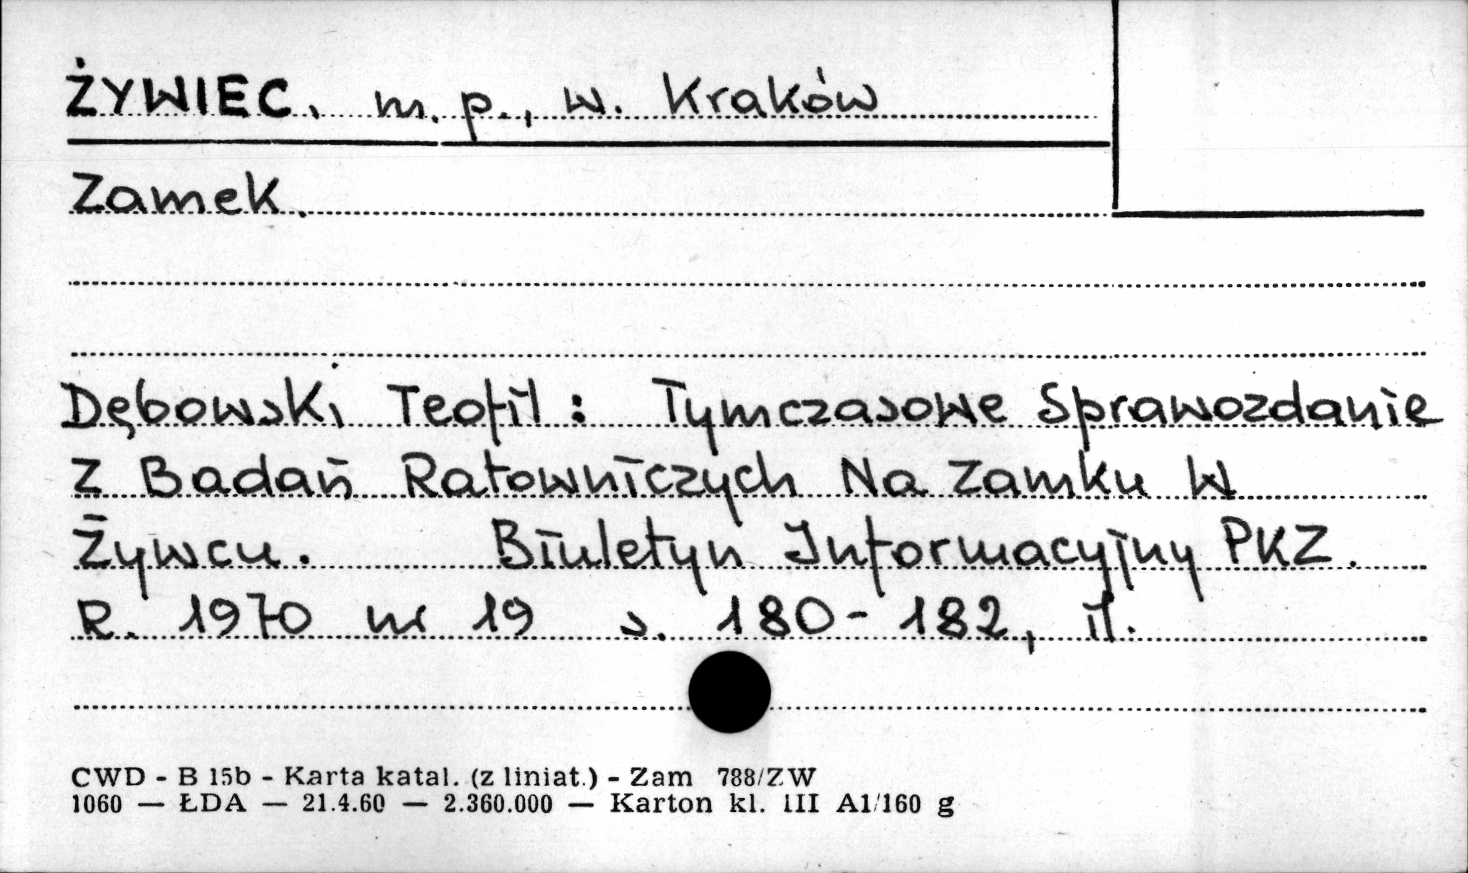 ŻYWIEC, m. p., w. Kraków
Zamek.
Dębowski Teofil: Tymczasowe Sprawozdanie
Z Badań Ratowniczych Na Zamku W
Żywcu. Biuletyn Informacyjny PKZ.
R. 1970 nr 19 s. 180-182, il.
CWD - B 15b - Karta katal. (z liniat.) - Zam 788/ZW
1060 — ŁDA — 21.4.60 — 2.360.000 — Karton kl. III A1/160 g